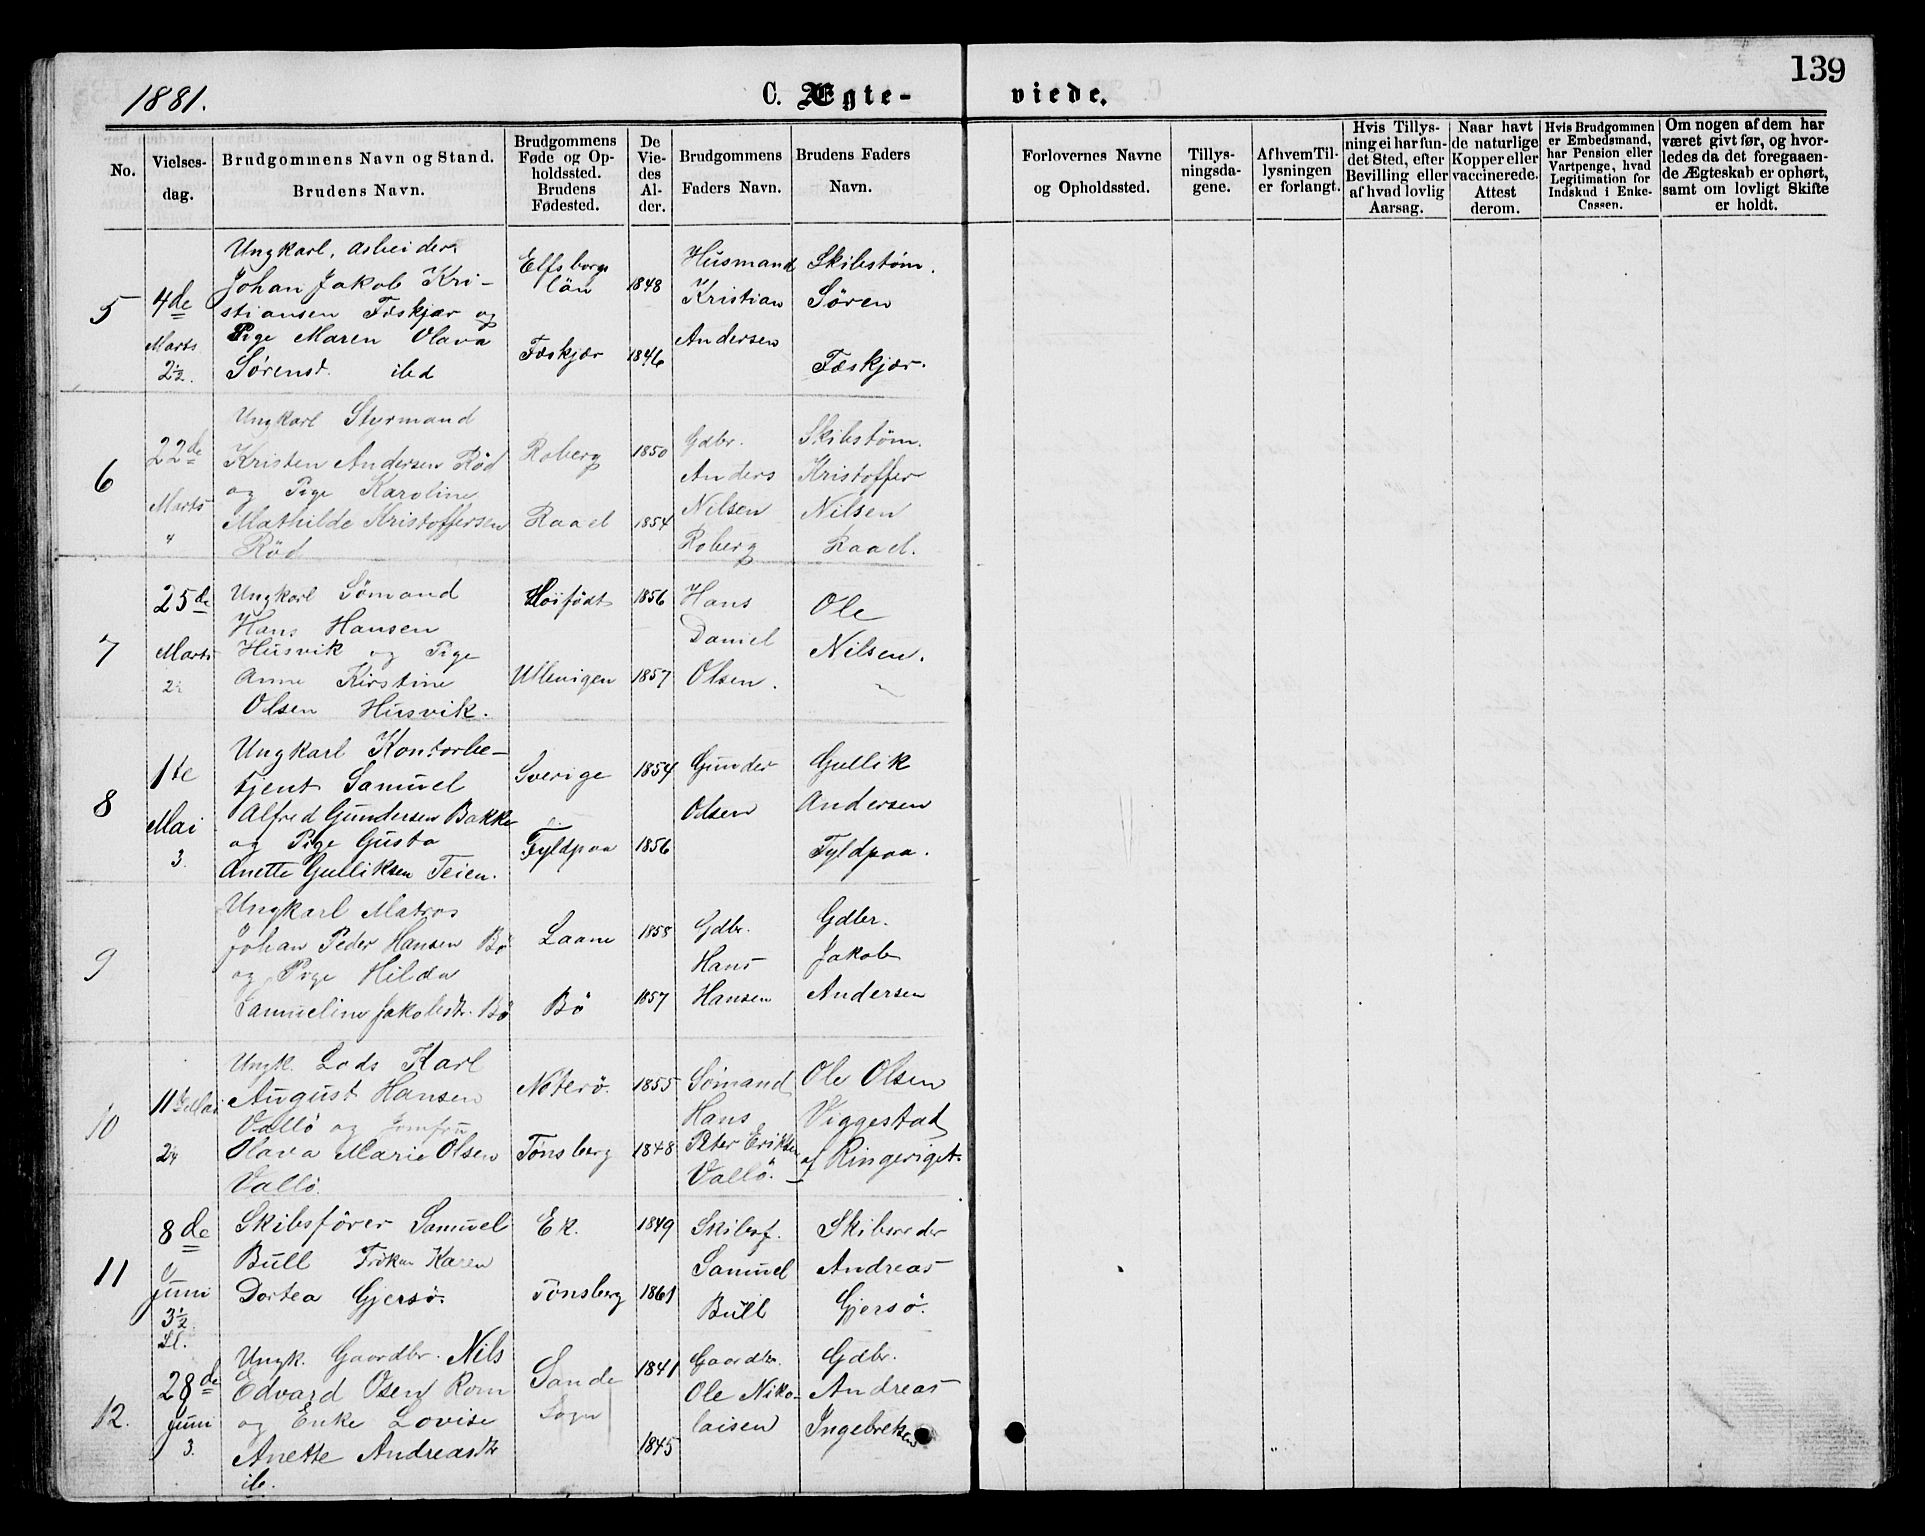 139
1881.
C. Ægte-
viede.
No.
Vielses-
dag.
Brudgommens Navn og Stand.
Brudens Navn.
Brudgommens
Føde og Op-
holdssted.
Brudens
Fødested.
De
Vie-
des
Al-
der.
Brudgommens
Faders Navn.
Brudens Faders
Navn.
Forlovernes Navne
og Opholdssted.
Tillys-
ningsda-
gene.
Af hvem Til-
lysningen
er forlangt.
Hvis Tillys-
ning ei har fun-
det Sted, efter
Bevilling eller
af hvad lovlig
Aarsag.
Naar havt
de naturlige
Kopper eller
vaccinerede.
Attest
derom.
Hvis Brudgommen
er Embedsmand,
har Pension eller
Vartpenge, hvad
Legitimation for
Indskud i Enke-
Cassen.
Om nogen af dem har
været givt før, og hvor-
ledes da det foregaaen-
de Ægteskab er ophørt,
samt om lovligt Skifte
er holdt.
5
4de
Marts
2½.
Ungkarl, Arbeider
Johan Jakob Kri-
stiansen Fæskjær og
Pige Maren Olava
Sørensd. ibd
Elfsborgs
län
Fæskjær
1848
1846
Husmand
Kristian
Andersen
Skibstøm.
Søren
Fæskjær.
6
22de
Marts
"
Ungkarl Styrmand
Kristen Andersen Röd
og Pige Karoline
Mathilde Kristoffersen
Röd
Roberg
Raael
1850
1854
Gdbr.
Anders
Nilsen
Roberg
Skibstøm.
Kristoffer
Nilsen
Raael.
7
25de
Marts
Ungkarl Sømand
Hans Hansen
Husvik og Pige
Anne Kirstine
Olsen Husvik.
Høifödt
Ullevigen
1856
1857
Hans
Daniel
Olsen.
Ole
Nilsen.
8
1te
Mai
3.
Ungkarl Kontorbe-
tjent Samuel
Alfred Gundersen Bakke
og Pige Gusta
Anette Gulliksen Teien.
Sverige
Fyldpaa
1854
1856
Gunder
Olsen
Gullik
Andersen
Fyldpaa.
9
Ungkarl Matros
Johan Peder Hansen Bö
og Pige Hilda
Samueline Jakobsdr. Bö
Laane
Bö
1858
1857
Gdbr.
Hans
Hansen
Gdbr.
Jakob
Andersen
10
11te Mai
Ungk. Lods Karl
August Hansen
Vallö og Jomfru
Olava Marie Olsen
Vallö.
Noterö.
Tönsberg
1855
1848
Sömand
Hans
Peter Eriksen
Vallö.
Ole Olsen
Viggestad
af Ringeriget.
11
8de
Juni
3½
Sl.
Skibsförer Samuel
Bull Frøken Karen
Dortea Gjersö.
Ek.
Tönsberg
1849
1861
Skibsf.
Samuel
Bull
Skibsreder
Andreas
Gjersö.
12.
28de
Juni
3.
Ungk. Gaardbr. Nils
Edvard Osen Rom
og Enke Lovise
Anette Andreasdr
ib.
Sande
Sogn
1841
1845
Gaardbr.
Ole Niko-
laisen
Gdbr.
Andreas
Ingebretsen